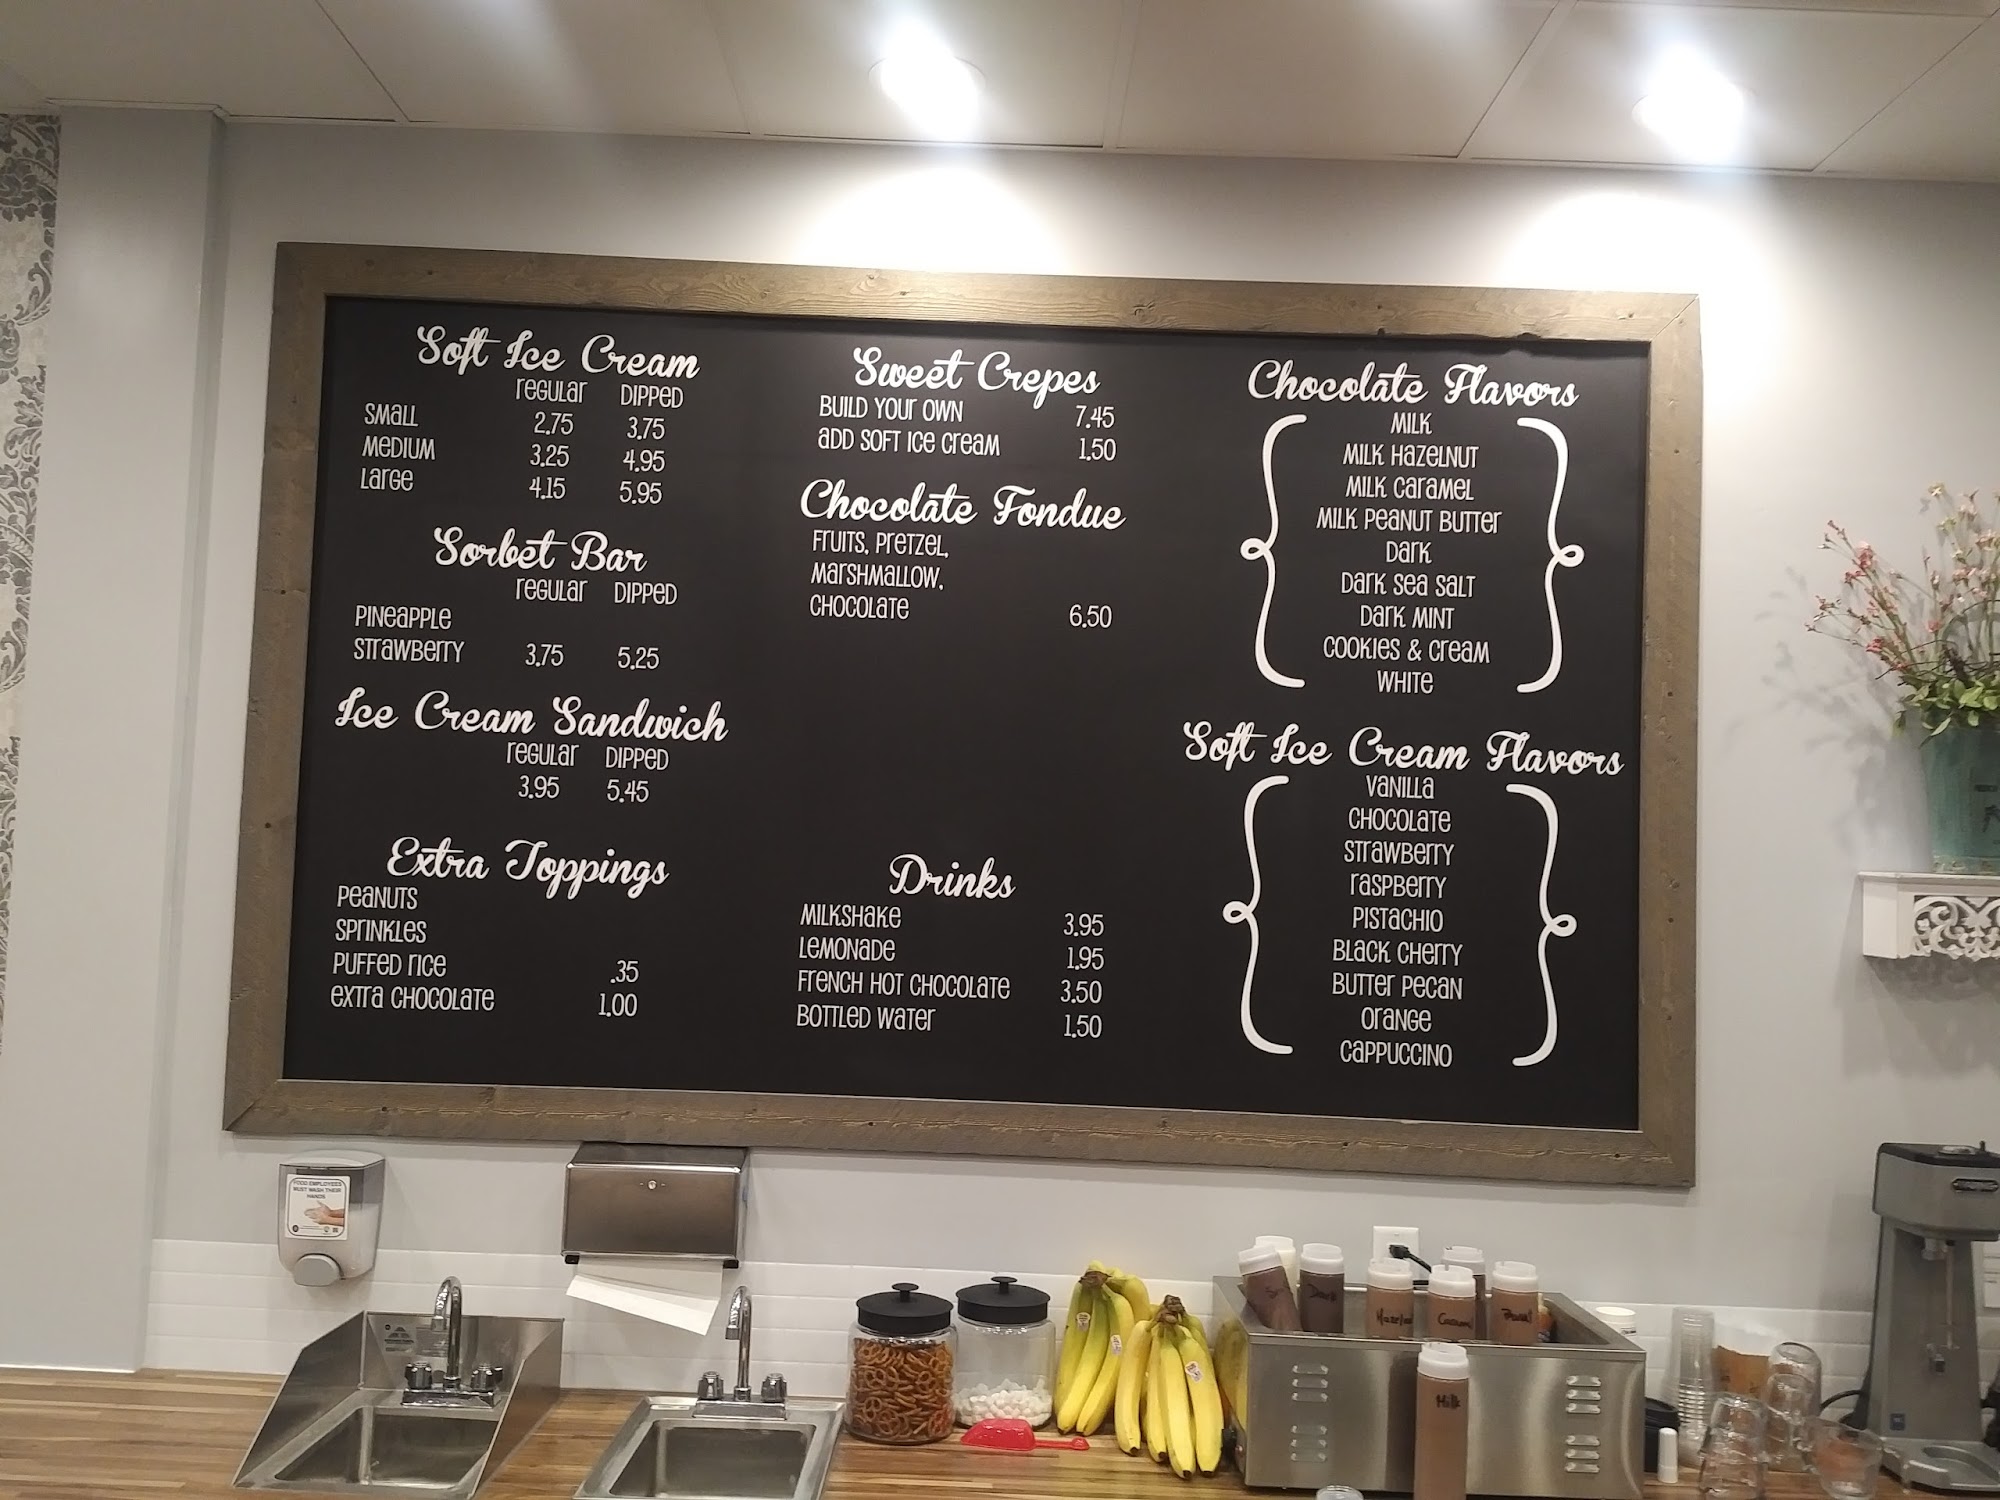 Soft Ice Cream
regular DIPPED
SMALL 2.75 3.75
MEDIUM 3.25 4.95
Large 4.15 5.95
Sorbet Bar
regular DIPPED
PINEAPPLE
STRAWBERRY 3.75 5.25
Ice Cream Sandwich
regular DIPPED
3.95 5.45
Extra Toppings
PEANUTS
SPRINKLES
PUFFED RICE .35
EXTRA CHOCOLATE 1.00
Sweet Crepes
BUILD YOUR OWN 7.45
ADD SOFT ICE CREAM 1.50
Chocolate Fondue
FRUITS, PRETZEL,
MARSHMALLOW,
CHOCOLATE 6.50
Drinks
MILKSHAKE 3.95
LEMONADE 1.95
FRENCH HOT CHOCOLATE 3.50
BOTTLED WATER 1.50
Chocolate Flavors
MILK
MILK HAZELNUT
MILK CARAMEL
MILK PEANUT BUTTER
DARK
DARK SEA SALT
DARK MINT
COOKIES & CREAM
WHITE
Soft Ice Cream Flavors
VANILLA
CHOCOLATE
STRAWBERRY
RASPBERRY
PISTACHIO
BLACK CHERRY
BUTTER PECAN
ORANGE
CAPPUCCINO
FOOD EMPLOYEES
MUST WASH THEIR
HANDS
Dark
Milk